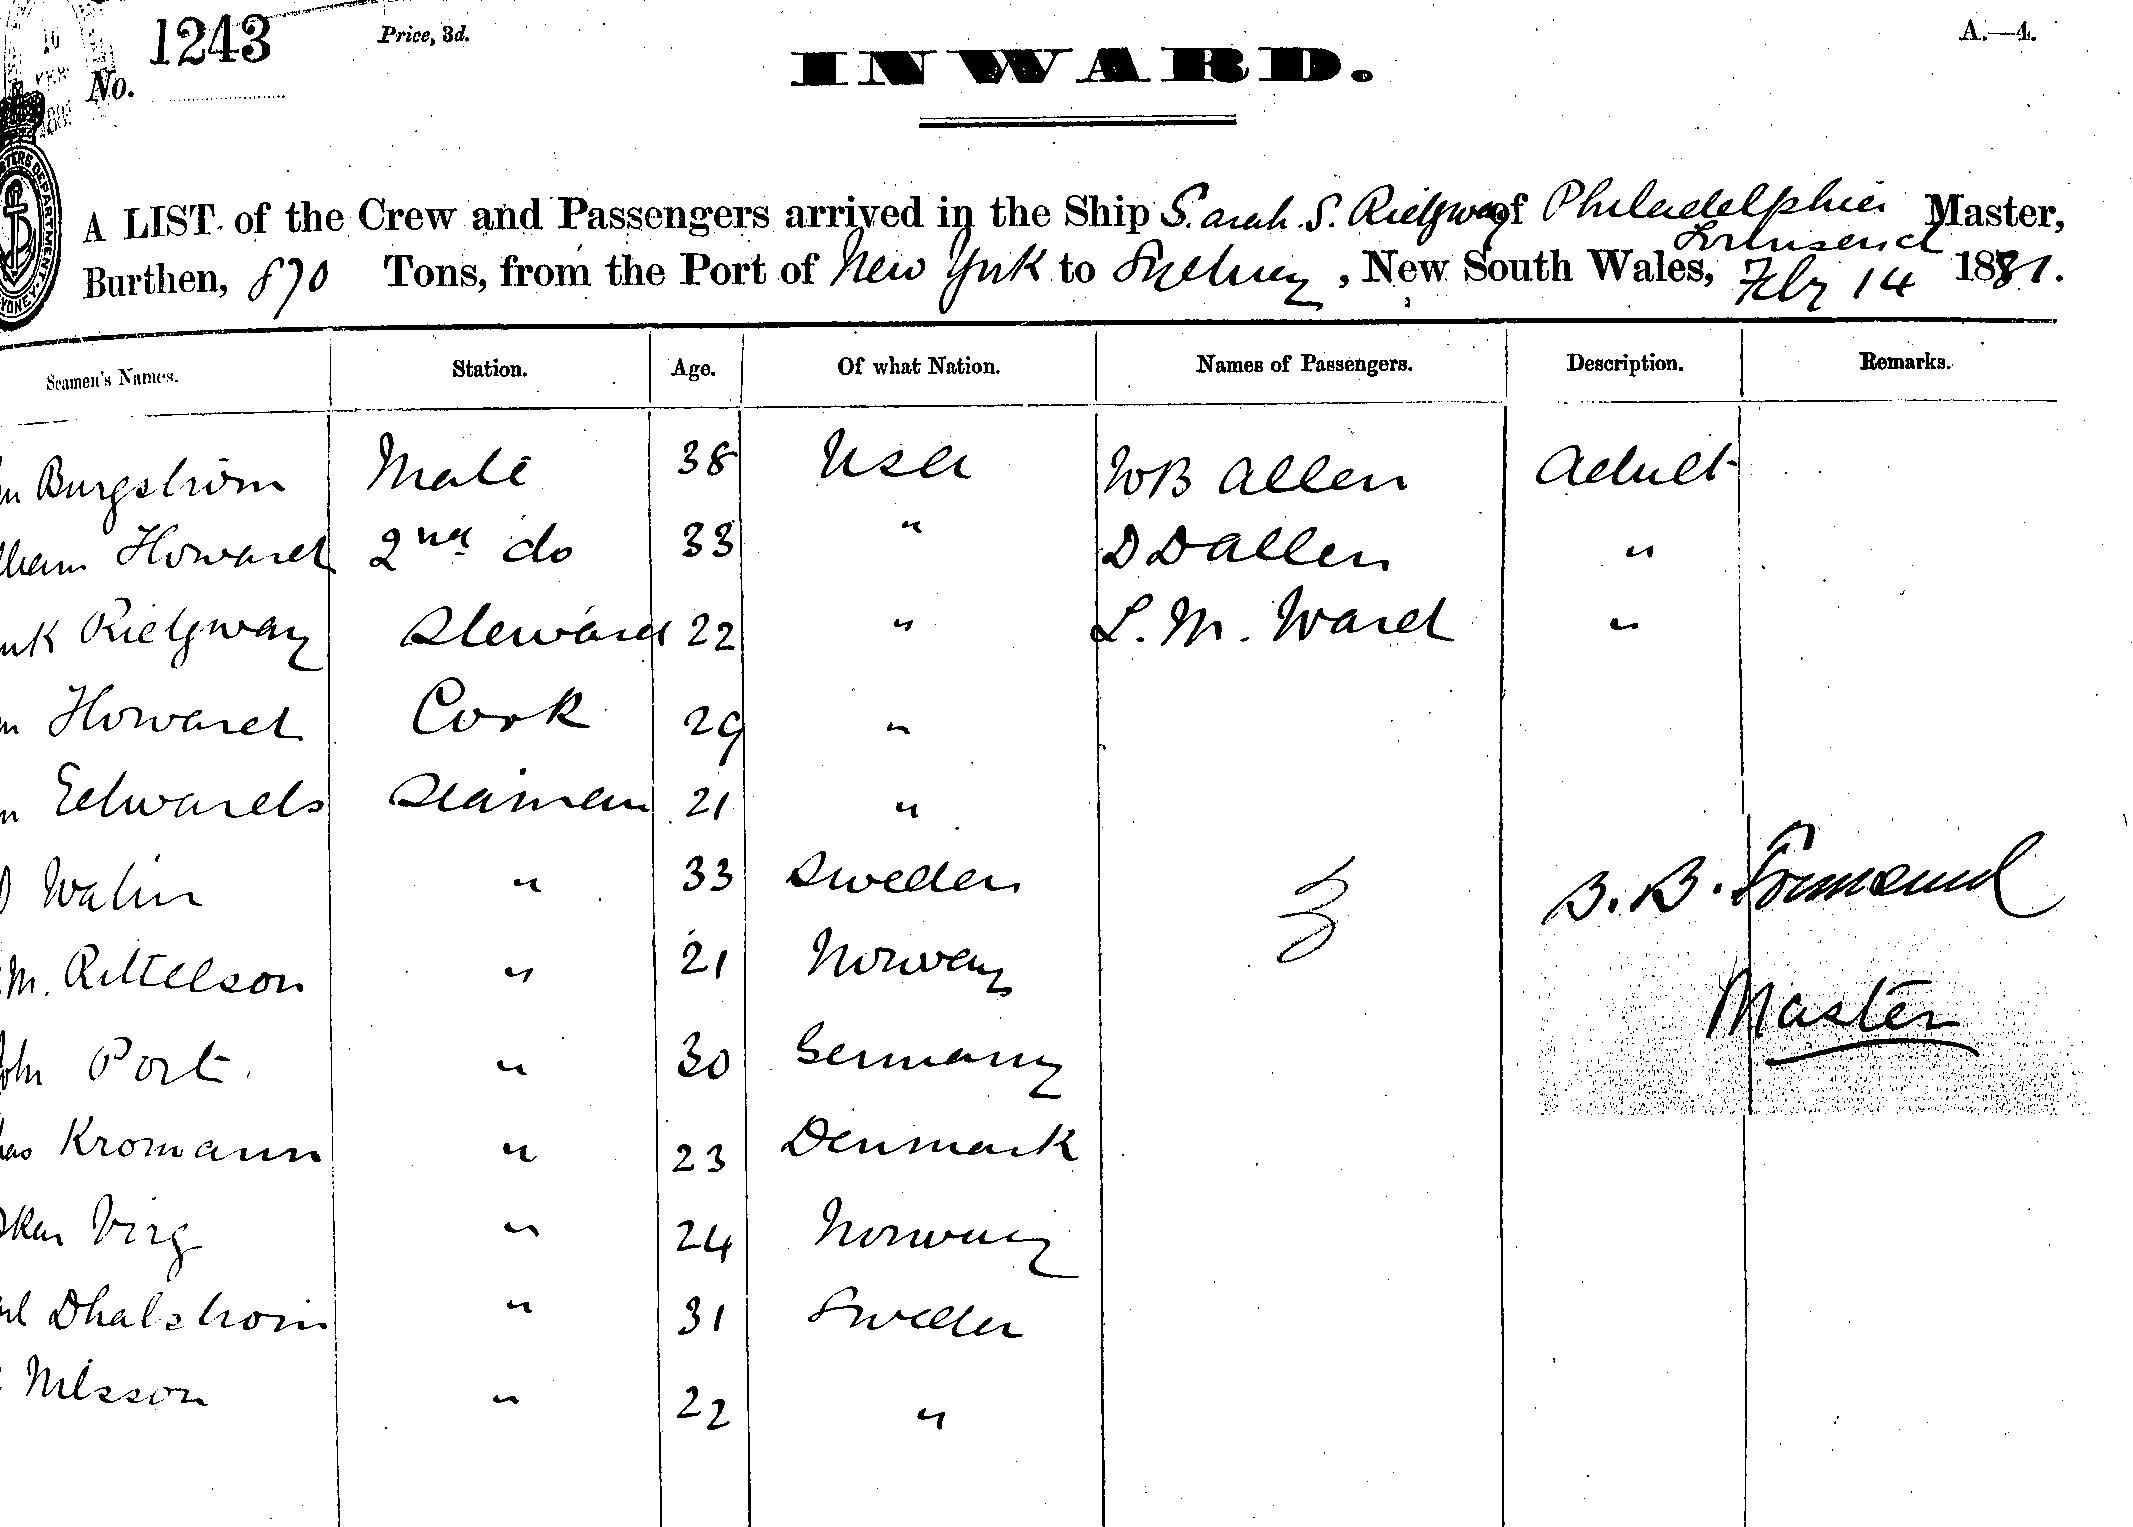 No. 1243
Price, 3d.
A.—4.
INWARD.
A LIST of the Crew and Passengers arrived in the Ship Sarah. S. Ridgway of Philadelphia Townsend Master,
Burthen, 870 Tons, from the Port of New York to Sydney, New South Wales, Feby 14 1881.
Seamen's Names. Station. Age. Of what Nation. Names of Passengers. Description. Remarks.
Burgstrom Mate 38 USA WB Allen Adult
Howard 2nd do 33 " D D Allen "
Ridgway Steward 22 " L. M. Ward "
Howard Cook 29 "
Edwards Seaman 21 "
Walin " 33 Sweden 3 B. B. Townsend
M. Rettelson " 21 Norway Master
John Port " 30 Germany
Kromann " 23 Denmark
Virg " 24 Norway
Dhalstrom " 31 Sweden
Nilsson " 22 "